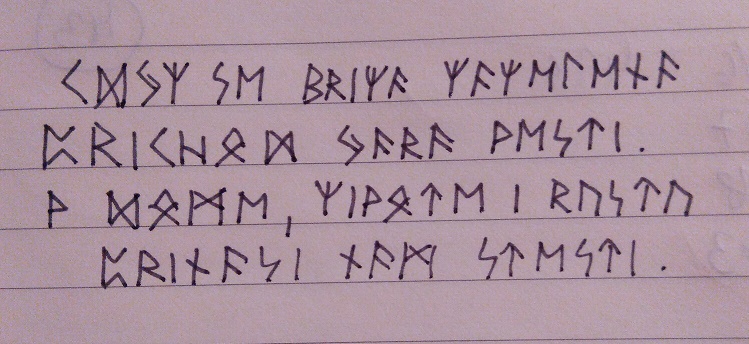 ᚲᛞᛃᛉ ᛋᛖ ᛒᚱᛁᛉᚨ ᛉᚨᛉᛖᛚᛖᚾᚨ
ᛈᚱᛁᚲᚺᛟᛞ ᛃᚨᚱᚨ ᚹᛖᛋᛏᛁ.
ᚹ ᛞᛟᛗᛖ, ᛉᛁᚹᛟᛏᛖ ᛁ ᚱᚢᛋᛏᚢ
ᛈᚱᛁᚾᚨᛋᛁ ᚾᚨᛗ ᛋᛏᛖᛋᛏᛁ.